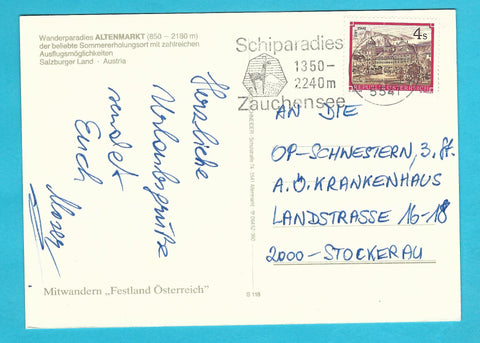 Wanderparadies ALTENMARKT (850 – 2180 m)
der beliebte Sommererholungsort mit zahlreichen
Ausflugsmöglichkeiten
Salzburger Land · Austria
Herzliche
Urlaubsgrüße
sendet
Euch
Moser
Mitwandern „Festland Österreich"
S 118
Schiparadies
1350–
2240m
Zauchensee
5541
4s
REPUBLIK ÖSTERREICH
AN DIE
OP-SCHWESTERN, 3. St.
A.Ö. KRANKENHAUS
LANDSTRASSE 16-18
2000-STOCKERAU